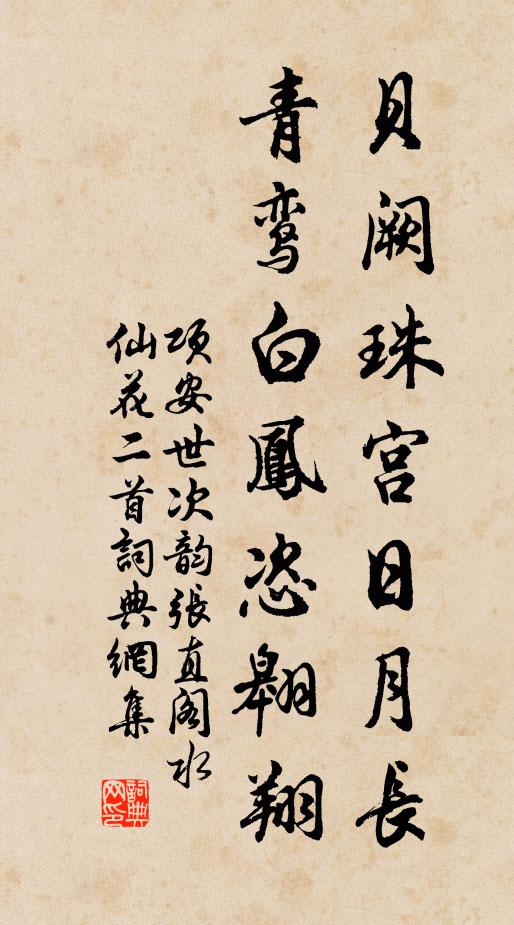 貝闕珠宫日月長
青鸾白鳳恣翱翔
項安世次韵張直閣水
仙花二首詞典網集
詞典网印